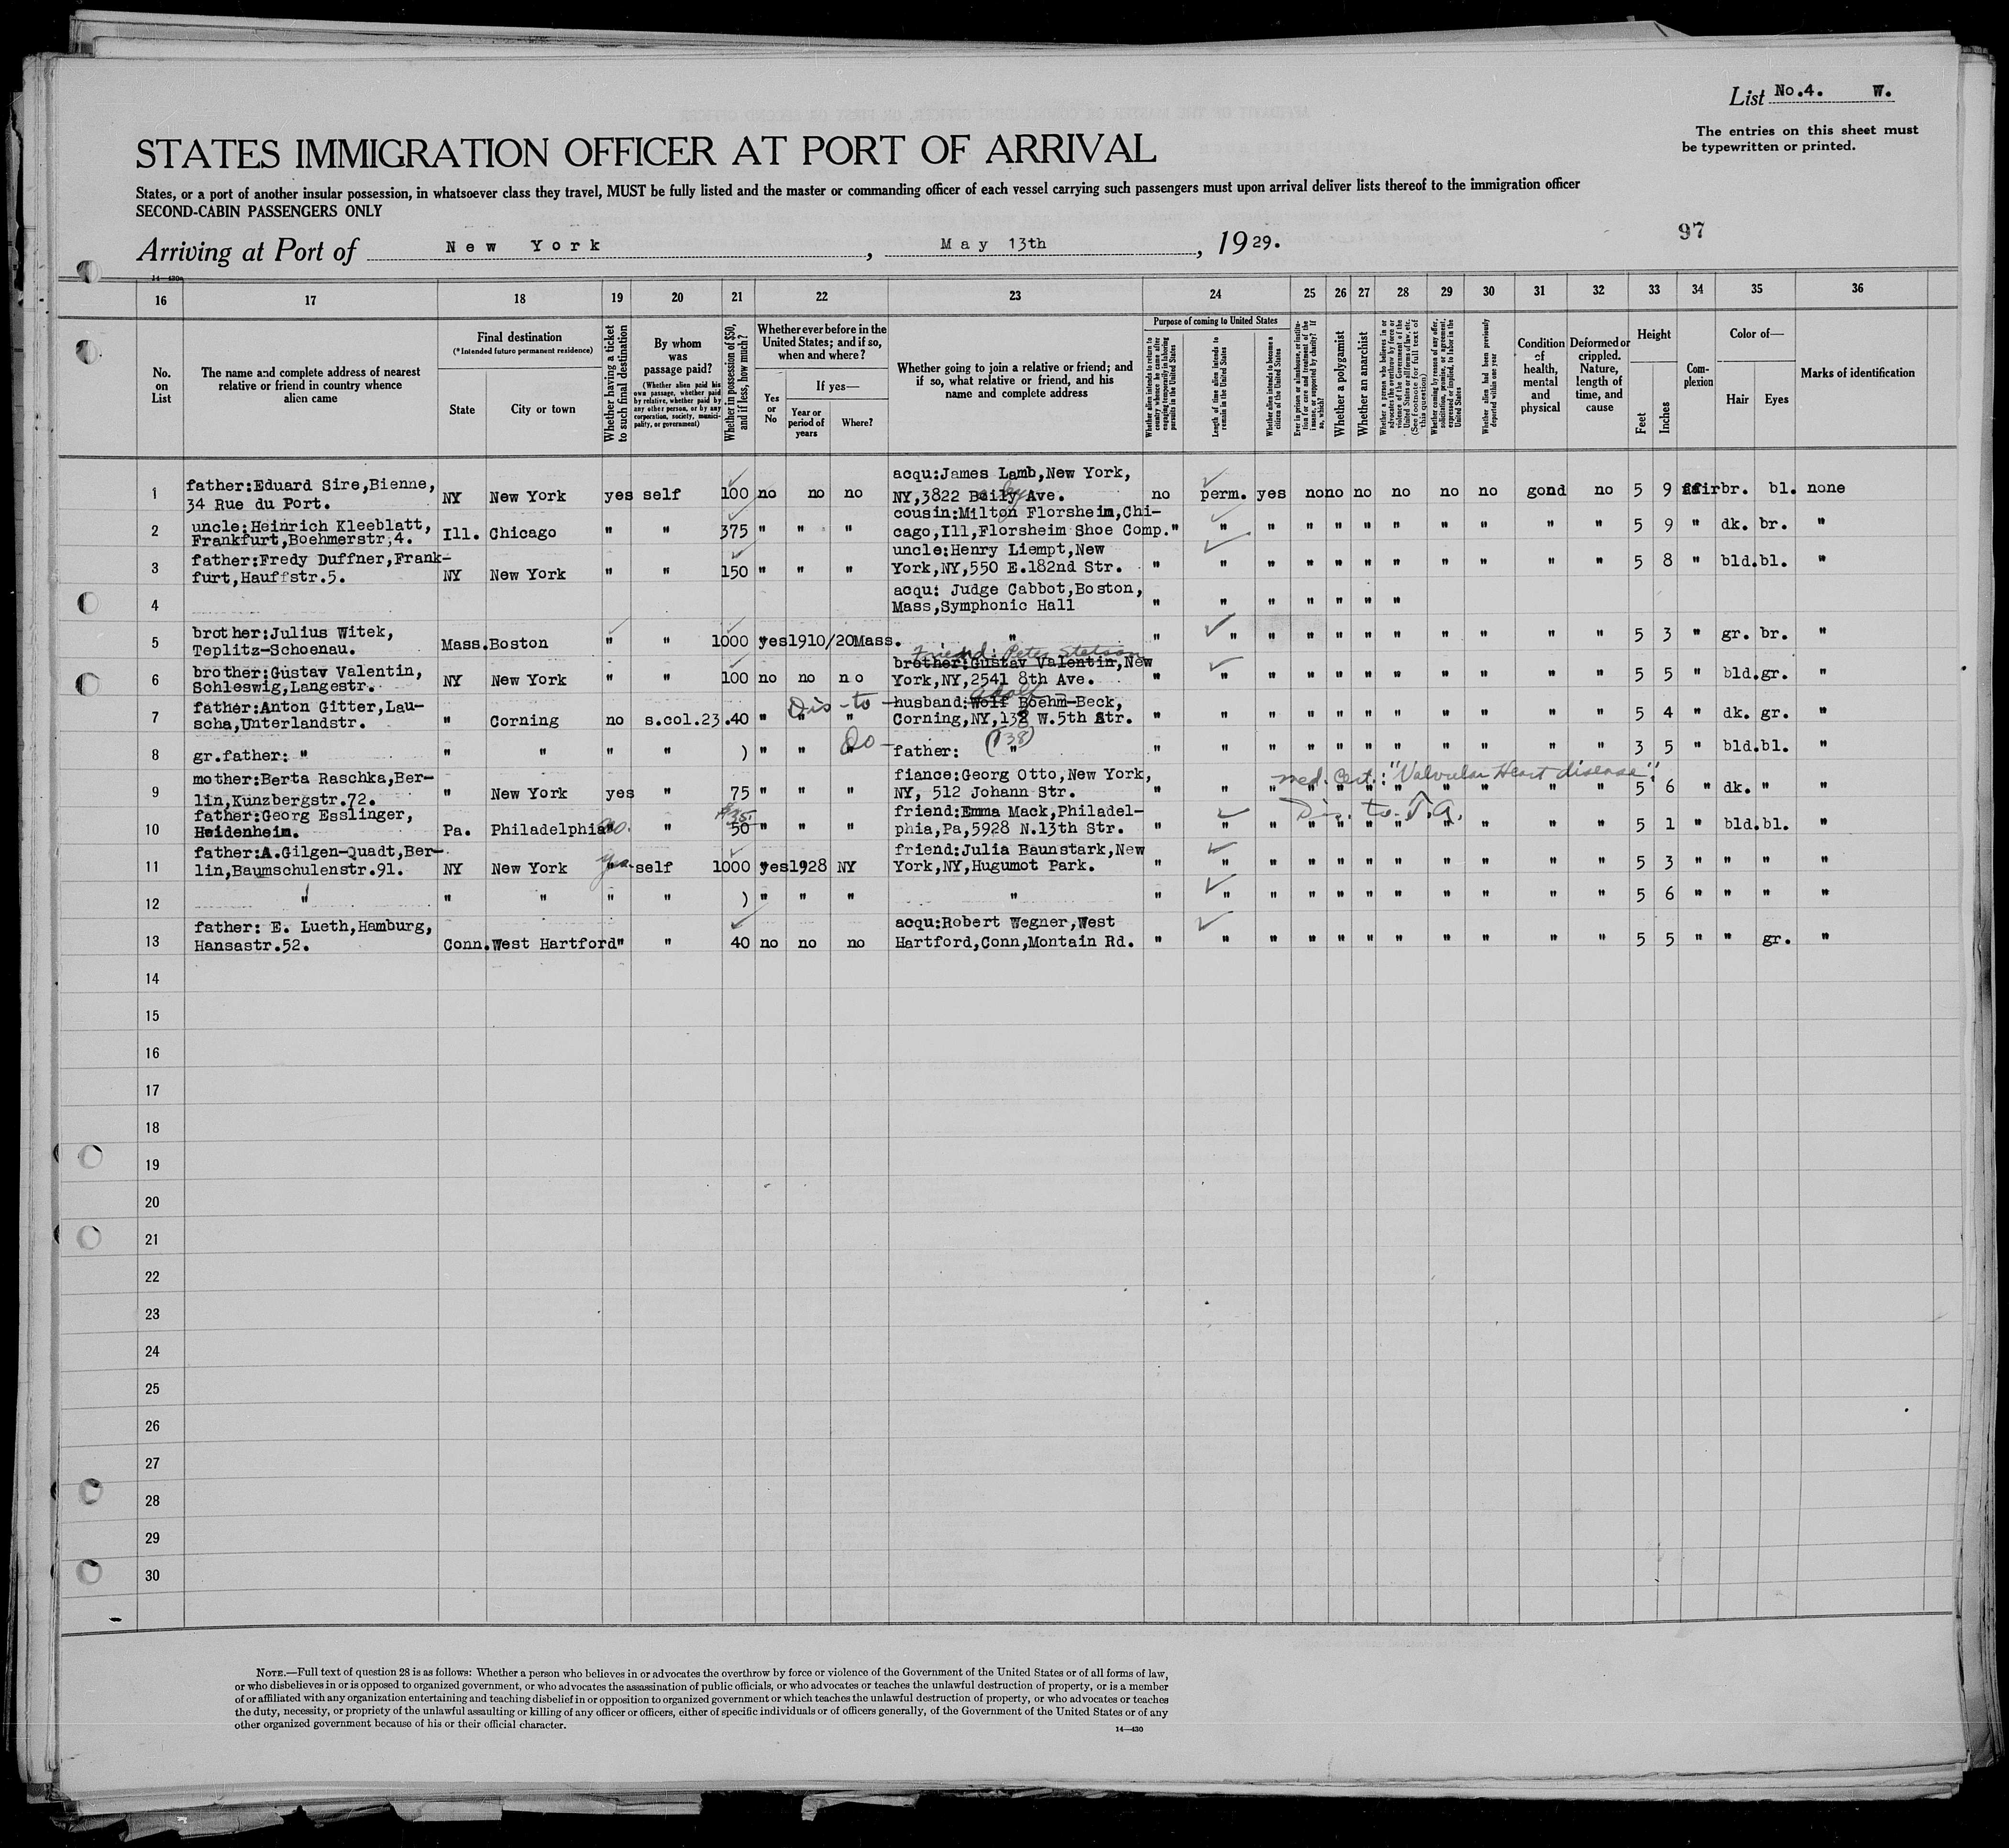 List No.4. W.
The entries on this sheet must
be typewritten or printed.
STATES IMMIGRATION OFFICER AT PORT OF ARRIVAL
States, or a port of another insular possession, in whatsoever class they travel, MUST be fully listed and the master or commanding officer of each vessel carrying such passengers must upon arrival deliver lists thereof to the immigration officer
SECOND-CABIN PASSENGERS ONLY
97
Arriving at Port of New York, May 13th, 1929.
14—430a
16 17 18 19 20 21 22 23 24 25 26 27 28 29 30 31 32 33 34 35 36
No. on List
The name and complete address of nearest relative or friend in country whence alien came
Final destination
(*Intended future permanent residence)
State
City or town
Whether having a ticket to such final destination
By whom was passage paid?
(Whether alien paid his own passage, whether paid by relative, whether paid by any other person, or by any corporation, society, municipality, or government)
Whether in possession of $50, and if less, how much?
Whether ever before in the United States; and if so, when and where?
Yes or No
If yes—
Year or period of years
Where?
Whether going to join a relative or friend; and if so, what relative or friend, and his name and complete address
Purpose of coming to United States
Whether alien intends to return to country whence he came after engaging temporarily in laboring pursuits in the United States
Length of time alien intends to remain in the United States
Whether alien intends to become a citizen of the United States
Ever in prison or almshouse, or institution for care and treatment of the insane, or supported by charity? If so, which?
Whether a polygamist
Whether an anarchist
Whether a person who believes in or advocates the overthrow by force or violence of the Government of the United States or all forms of law, etc. (See footnote for full text of this question)
Whether coming by reason of any offer, solicitation, promise, or agreement, expressed or implied, to labor in the United States
Whether alien had been previously deported within one year
Condition of health, mental and physical
Deformed or crippled. Nature, length of time, and cause
Height
Feet
Inches
Complexion
Color of—
Hair
Eyes
Marks of identification
1 father:Eduard Sire,Bienne, 34 Rue du Port. NY New York yes self 100 no no no acqu:James Lamb,New York, NY,3822 Baily Ave. no perm. yes no no no no no no good no 5 9 fair br. bl. none
2 uncle:Heinrich Kleeblatt, Frankfurt,Boehmerstr,4. Ill. Chicago " " 375 " " " cousin:Milton Florsheim,Chicago,Ill,Florsheim Shoe Comp. " " " " " " " " " " " 5 9 " dk. br. "
3 father:Fredy Duffner,Frankfurt,Hauffstr.5. NY New York " " 150 " " " uncle:Henry Liempt,New York,NY,550 E.182nd Str. " " " " " " " " " " " 5 8 " bld. bl. "
4 acqu: Judge Cabbot,Boston, Mass,Symphonic Hall " " " " " " "
5 brother:Julius Witek, Teplitz-Schoenau. Mass. Boston " " 1000 yes 1910/20 Mass. " " " " " " " " " " " " 5 3 " gr. br. "
Friend: Peter Stetson
6 brother:Gustav Valentin, Schleswig,Langestr. NY New York " " 100 no no no brother:Gustav Valentin,New York,NY,2541 8th Ave. " " " " " " " " " " " 5 5 " bld. gr. "
Dis-to- Adolf
7 father:Anton Gitter,Lauscha,Unterlandstr. " Corning no s.col.23. 40 " " " husband:Wolf Boehm-Beck, Corning,NY,138 W.5th Str. " " " " " " " " " " " 5 4 " dk. gr. "
Do- (138)
8 gr.father: " " " " " ) " " " father: " " " " " " " " " " " " 3 5 " bld. bl. "
med. Cert.: "Valvular Heart disease".
9 mother:Berta Raschka,Berlin,Kunzbergstr.72. " New York yes " 75 " " " fiance:Georg Otto,New York, NY, 512 Johann Str. " " " " " " " " " " " 5 6 " dk. " "
$35. no. Dis. to T.A.
10 father:Georg Esslinger, Heidenheim. Pa. Philadelphia " " 50 " " " friend:Emma Mack,Philadelphia,Pa,5928 N.13th Str. " " " " " " " " " " " 5 1 " bld. bl. "
yes
11 father:A.Gilgen-Quadt,Berlin,Baumschulenstr.91. NY New York " self 1000 yes 1928 NY friend:Julia Baunstark,New York,NY,Hugumot Park. " " " " " " " " " " " 5 3 " " " "
12 " " " " " ) " " " " " " " " " " " " " " " 5 6 " " " "
13 father: E. Lueth,Hamburg, Hansastr.52. Conn. West Hartford " " 40 no no no acqu:Robert Wegner,West Hartford,Conn,Montain Rd. " " " " " " " " " " " 5 5 " " gr. "
14
15
16
17
18
19
20
21
22
23
24
25
26
27
28
29
30
NOTE.—Full text of question 28 is as follows: Whether a person who believes in or advocates the overthrow by force or violence of the Government of the United States or of all forms of law,
or who disbelieves in or is opposed to organized government, or who advocates the assassination of public officials, or who advocates or teaches the unlawful destruction of property, or is a member
of or affiliated with any organization entertaining and teaching disbelief in or opposition to organized government or which teaches the unlawful destruction of property, or who advocates or teaches
the duty, necessity, or propriety of the unlawful assaulting or killing of any officer or officers, either of specific individuals or of officers generally, of the Government of the United States or of any
other organized government because of his or their official character.
14—430